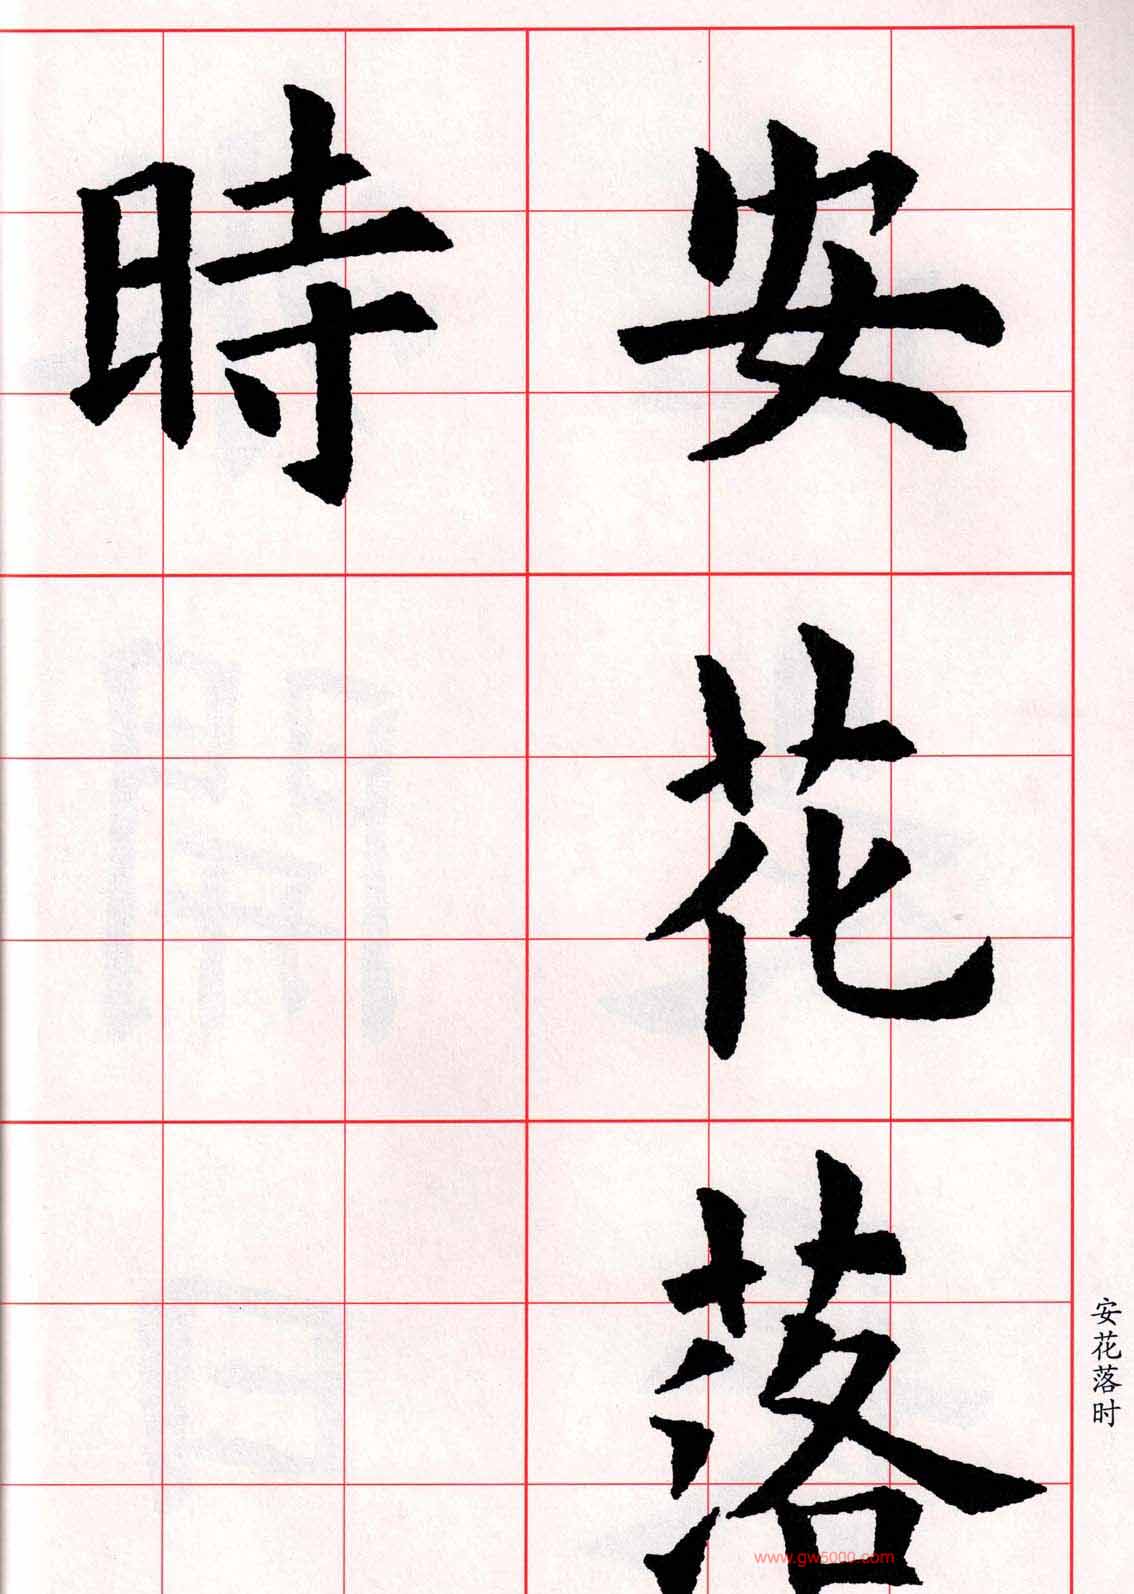 安花落
時
安花落时
www.gw5000.com